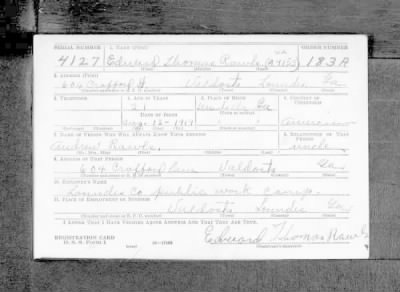 SERIAL NUMBER 1. NAME (Print) ORDER NUMBER
4127 Edward Thomas Rawls 183A
(First) (Middle) (Last)
2. ADDRESS (Print)
604 Crafford St. Valdosta Lowndes Ga
3. TELEPHONE 4. AGE IN YEARS 5. PLACE OF BIRTH 6. COUNTRY OF CITIZENSHIP
21 Ga
DATE OF BIRTH
1919 American
7. NAME OF PERSON WHO WILL ALWAYS KNOW YOUR ADDRESS 8. RELATIONSHIP OF THAT PERSON
Andrew Rawls uncle
9. ADDRESS OF THAT PERSON
604 Crafford Valdosta Ga
10. EMPLOYER'S NAME
Lowndes Co public work camp
11. PLACE OF EMPLOYMENT OR BUSINESS
Valdosta Lowndes Ga
I AFFIRM THAT I HAVE VERIFIED ABOVE ANSWERS AND THAT THEY ARE TRUE.
REGISTRATION CARD
D. S. S. Form 1 Edward Thomas Rawls